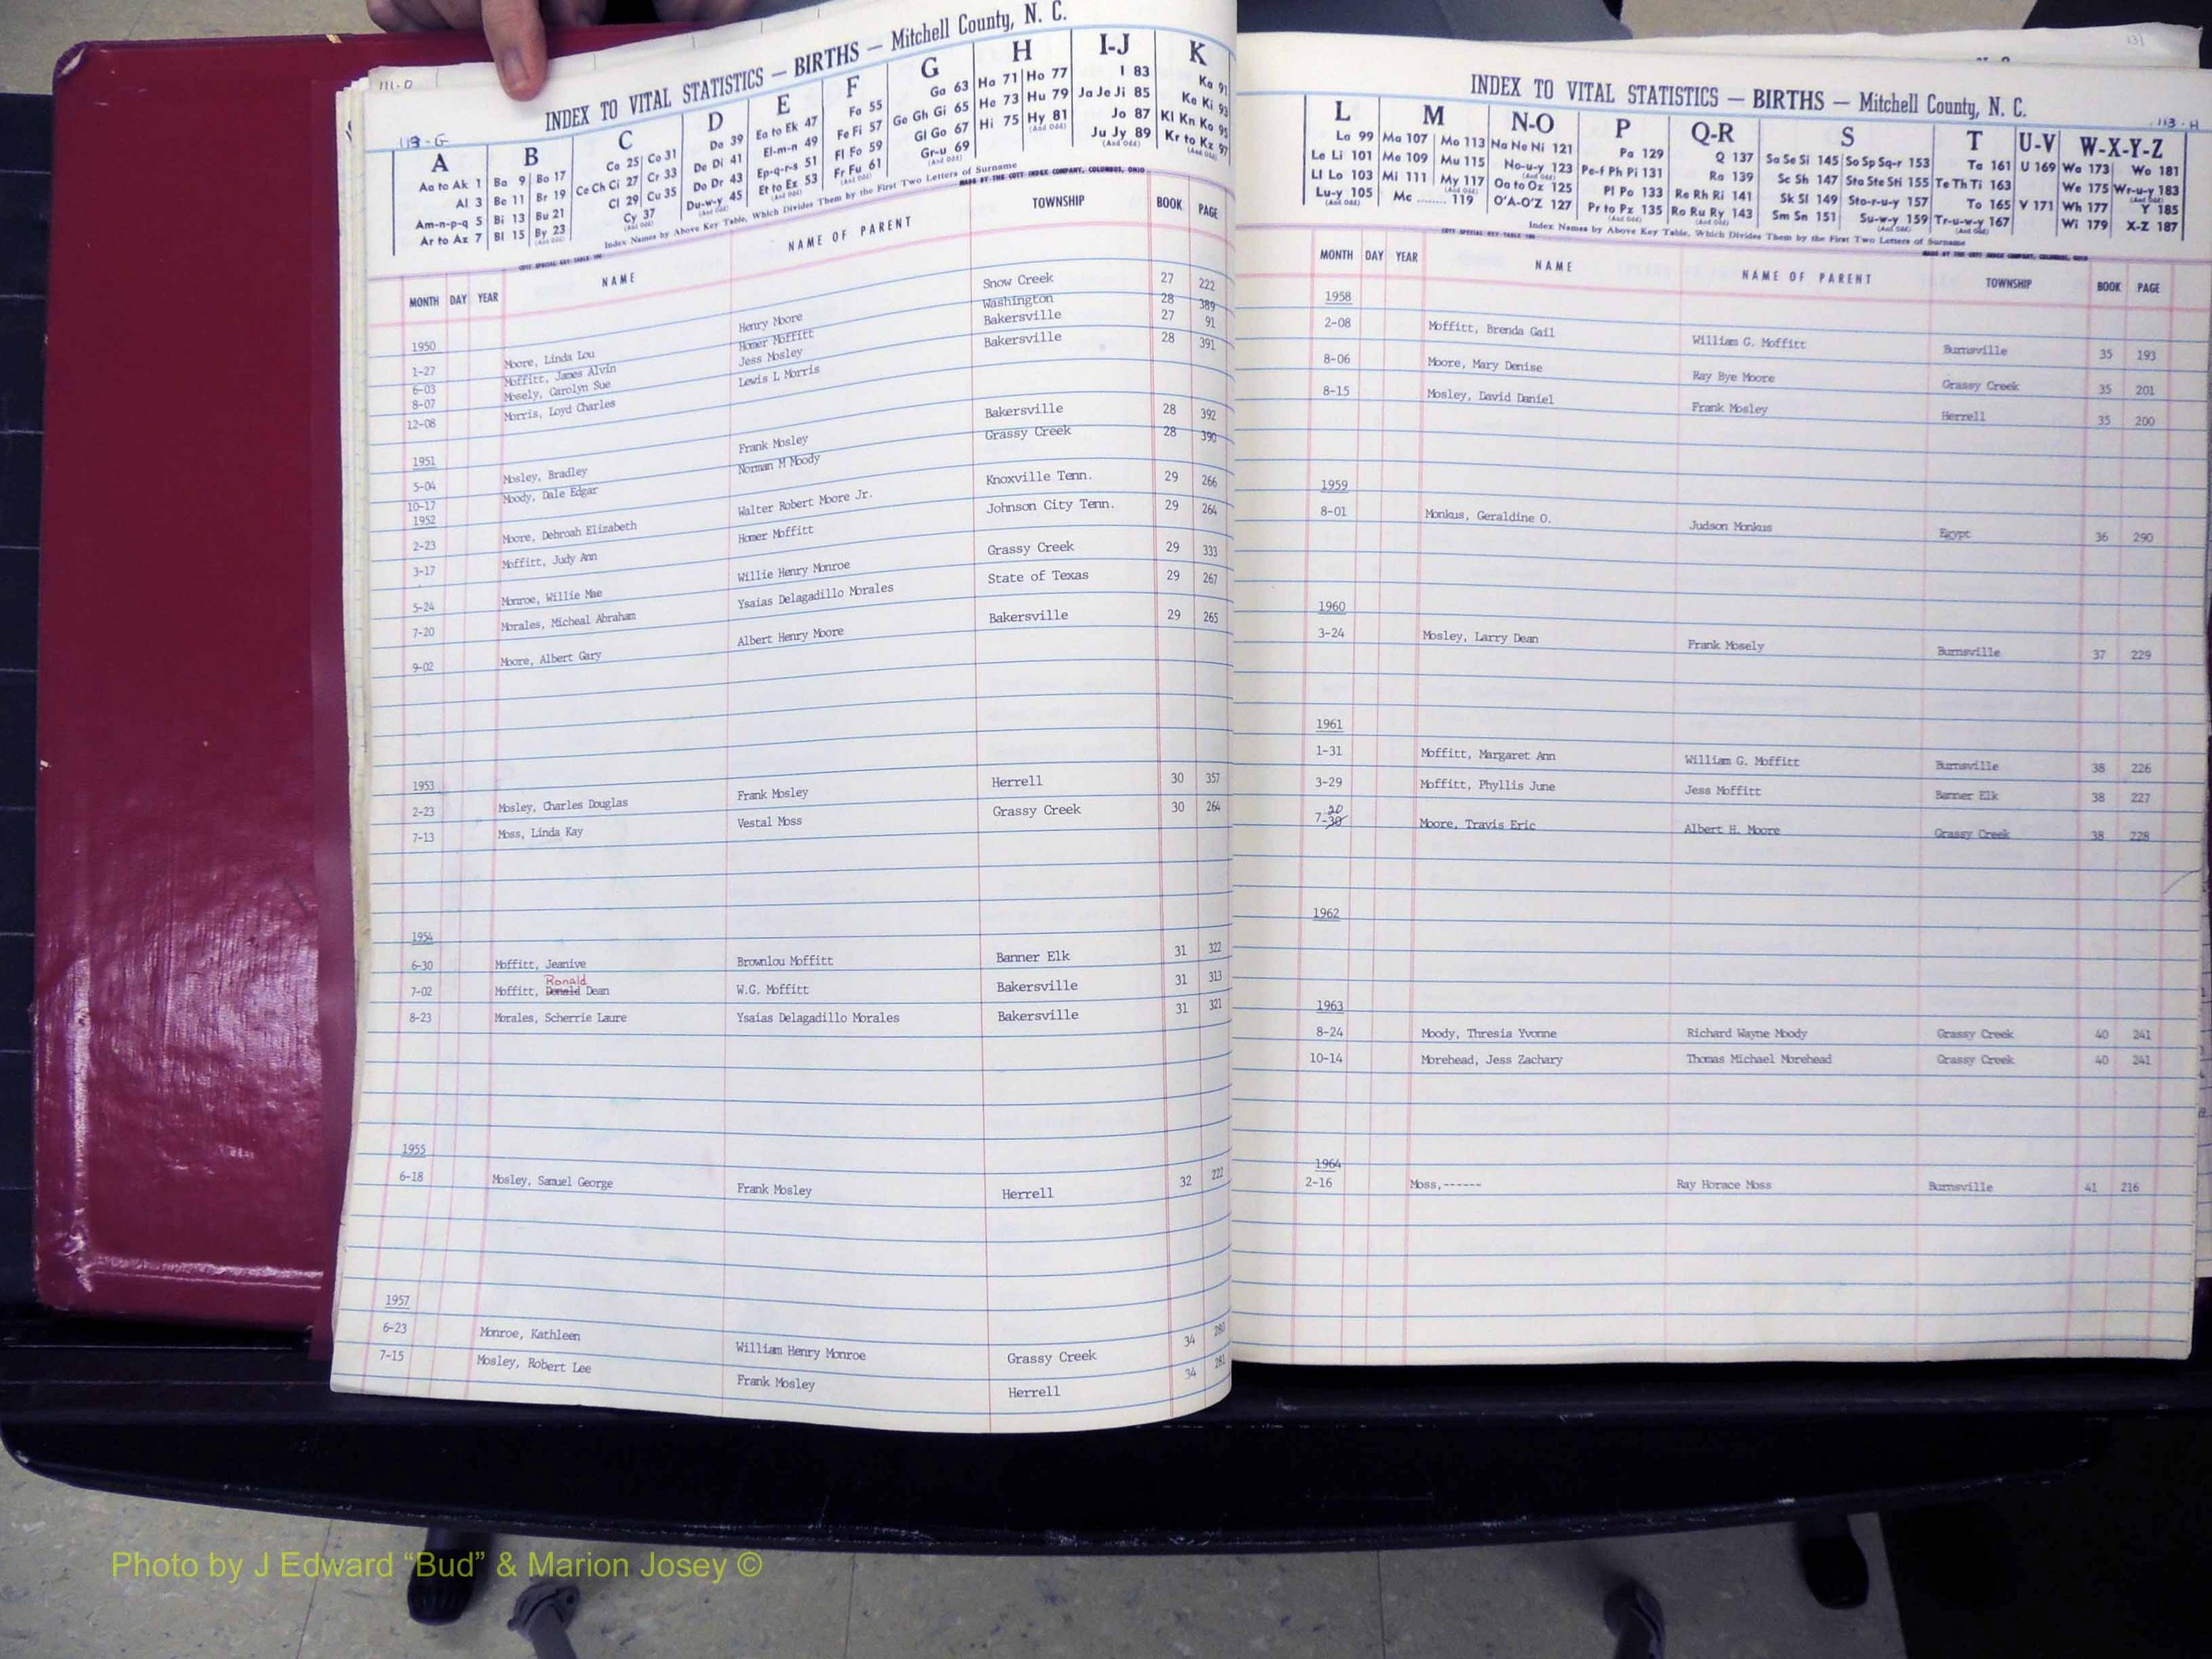 113-G
INDEX TO VITAL STATISTICS — BIRTHS — Mitchell County, N. C.
A B C D E F G H I-J K
Aa to Ak 1 Ba 9 Bo 17 Ca 25 Co 31 Da 39 Ea to Ek 47 Fa 55 Ga 63 Ha 71 Ho 77 I 83 Ka 91
Al 3 Be 11 Br 19 Ce Ch Ci 27 Cr 33 De Di 41 El-m-n 49 Fe Fi 57 Ge Gh Gi 65 He 73 Hu 79 Ja Je Ji 85 Ke Ki 93
Am-n-p-q 5 Bi 13 Bu 21 Cl 29 Cu 35 Do Dr 43 Ep-q-r-s 51 Fl Fo 59 Gl Go 67 Hi 75 Hy 81 Jo 87 Kl Kn Ko 95
Ar to Az 7 Bl 15 By 23 Cy 37 Du-w-y 45 Et to Ez 53 Fr Fu 61 Gr-u 69 Ju Jy 89 Kr to Kz 97
Index Names by Above Key Table, Which Divides Them by the First Two Letters of Surname
MADE BY THE COTT INDEX COMPANY, COLUMBUS, OHIO
MONTH DAY YEAR NAME NAME OF PARENT TOWNSHIP BOOK PAGE
1950
1-27 Moore, Linda Lou Henry Moore Snow Creek 27 222
6-03 Moffitt, James Alvin Homer Moffitt Washington 28 389
8-07 Mosely, Carolyn Sue Jess Mosley Bakersville 27 91
12-08 Morris, Loyd Charles Lewis L Morris Bakersville 28 391
1951
5-04 Mosley, Bradley Frank Mosley Bakersville 28 392
10-17 Moody, Dale Edgar Norman M Moody Grassy Creek 28 390
1952
2-23 Moore, Debroah Elizabeth Walter Robert Moore Jr. Knoxville Tenn. 29 266
3-17 Moffitt, Judy Ann Homer Moffitt Johnson City Tenn. 29 264
5-24 Monroe, Willie Mae Willie Henry Monroe Grassy Creek 29 333
7-20 Morales, Micheal Abraham Ysaias Delagadillo Morales State of Texas 29 267
9-02 Moore, Albert Gary Albert Henry Moore Bakersville 29 265
1953
2-23 Mosley, Charles Douglas Frank Mosley Herrell 30 357
7-13 Moss, Linda Kay Vestal Moss Grassy Creek 30 264
1954
6-30 Moffitt, Jeanive Brownlou Moffitt Banner Elk 31 322
Ronald
7-02 Moffitt, Donald Dean W.G. Moffitt Bakersville 31 313
8-23 Morales, Scherrie Laure Ysaias Delagadillo Morales Bakersville 31 321
1955
6-18 Mosley, Samuel George Frank Mosley Herrell 32 222
1957
6-23 Monroe, Kathleen William Henry Monroe Grassy Creek 34 280
7-15 Mosley, Robert Lee Frank Mosley Herrell 34 281
131
INDEX TO VITAL STATISTICS — BIRTHS — Mitchell County, N. C.
113-H
L M N-O P Q-R S T U-V W-X-Y-Z
La 99 Ma 107 Mo 113 Na Ne Ni 121 Pa 129 Q 137 Sa Se Si 145 So Sp Sq-r 153 Ta 161 U 169 Wa 173 Wo 181
Le Li 101 Me 109 Mu 115 No-u-y 123 Pe-f Ph Pi 131 Ra 139 Sc Sh 147 Sta Ste Sti 155 Te Th Ti 163 We 175 Wr-u-y 183
Ll Lo 103 Mi 111 My 117 Oa to Oz 125 Pl Po 133 Re Rh Ri 141 Sk Sl 149 Sto-r-u-y 157 To 165 V 171 Wh 177 Y 185
Lu-y 105 Mc ........ 119 O'A-O'Z 127 Pr to Pz 135 Ro Ru Ry 143 Sm Sn 151 Su-w-y 159 Tr-u-w-y 167 Wi 179 X-Z 187
Index Names by Above Key Table, Which Divides Them by the First Two Letters of Surname
MONTH DAY YEAR NAME NAME OF PARENT TOWNSHIP BOOK PAGE
1958
2-08 Moffitt, Brenda Gail William G. Moffitt Burnsville 35 193
8-06 Moore, Mary Denise Ray Bye Moore Grassy Creek 35 201
8-15 Mosley, David Daniel Frank Mosley Herrell 35 200
1959
8-01 Monkus, Geraldine O. Judson Monkus Egypt 36 290
1960
3-24 Mosley, Larry Dean Frank Mosely Burnsville 37 229
1961
1-31 Moffitt, Margaret Ann William G. Moffitt Burnsville 38 226
3-29 Moffitt, Phyllis June Jess Moffitt Banner Elk 38 227
20
7-30 Moore, Travis Eric Albert H. Moore Grassy Creek 38 228
1962
1963
8-24 Moody, Thresia Yvonne Richard Wayne Moody Grassy Creek 40 241
10-14 Morehead, Jess Zachary Thomas Michael Morehead Grassy Creek 40 241
1964
2-16 Moss,------ Ray Horace Moss Burnsville 41 216
Photo by J Edward “Bud” & Marion Josey ©